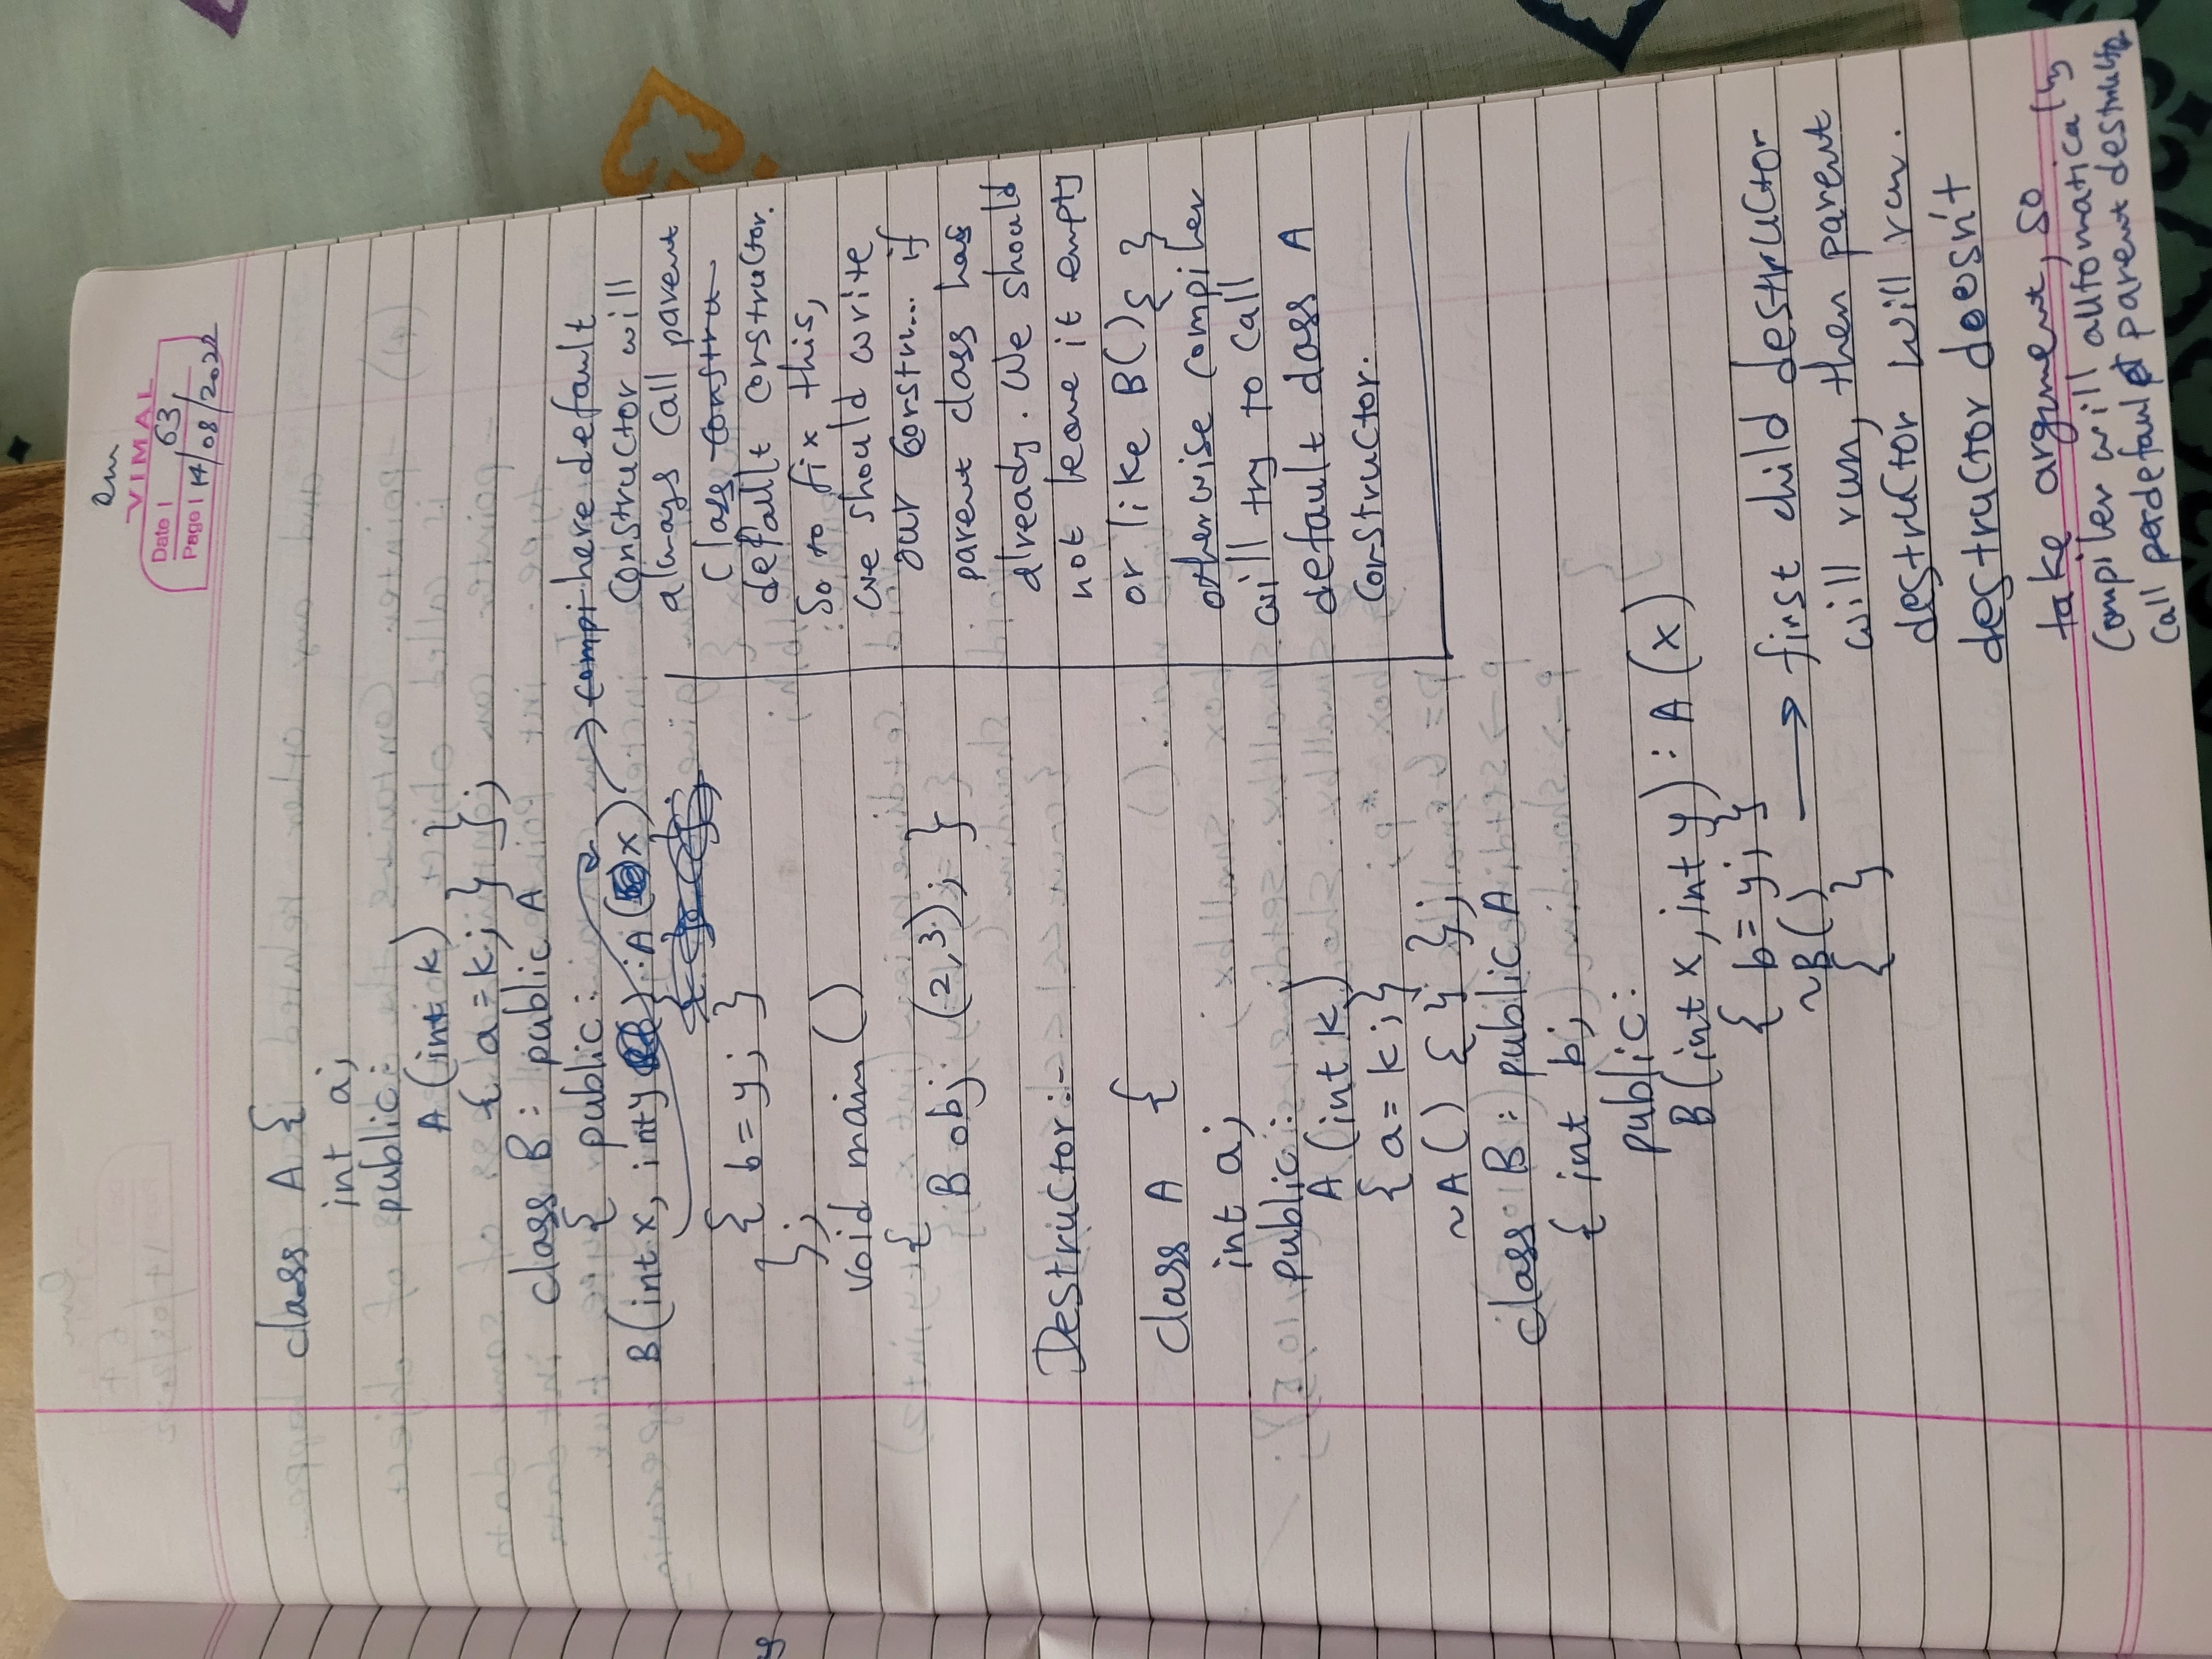 am
VIMAL
Date 63
Page 14/08/2022
class A {
int a;
public:
A (int k)
{ a = k; } };
class B : public A
{ public:
B(int x, int y) : A (x)
{ b = y; }
};
void main ()
{
B obj (2,3); }
compi here default
constructor will
always call parent
class constru
default constructor.
So to fix this,
we should write
our constru... if
parent class has
already. We should
not leave it empty
or like B(){ }
otherwise compiler
will try to call
default class A
constructor.
Destructor :-
class A {
int a;
public:
A (int k)
{ a = k; }
~A () { } };
class B : public A
{ int b;
public:
B(int x, int y) : A (x)
{ b = y; }
~B() → first child destructor
{ } will run, then parent
destructor will run.
destructor doesn't
take argument, so
compiler will automatically
call default parent destructor